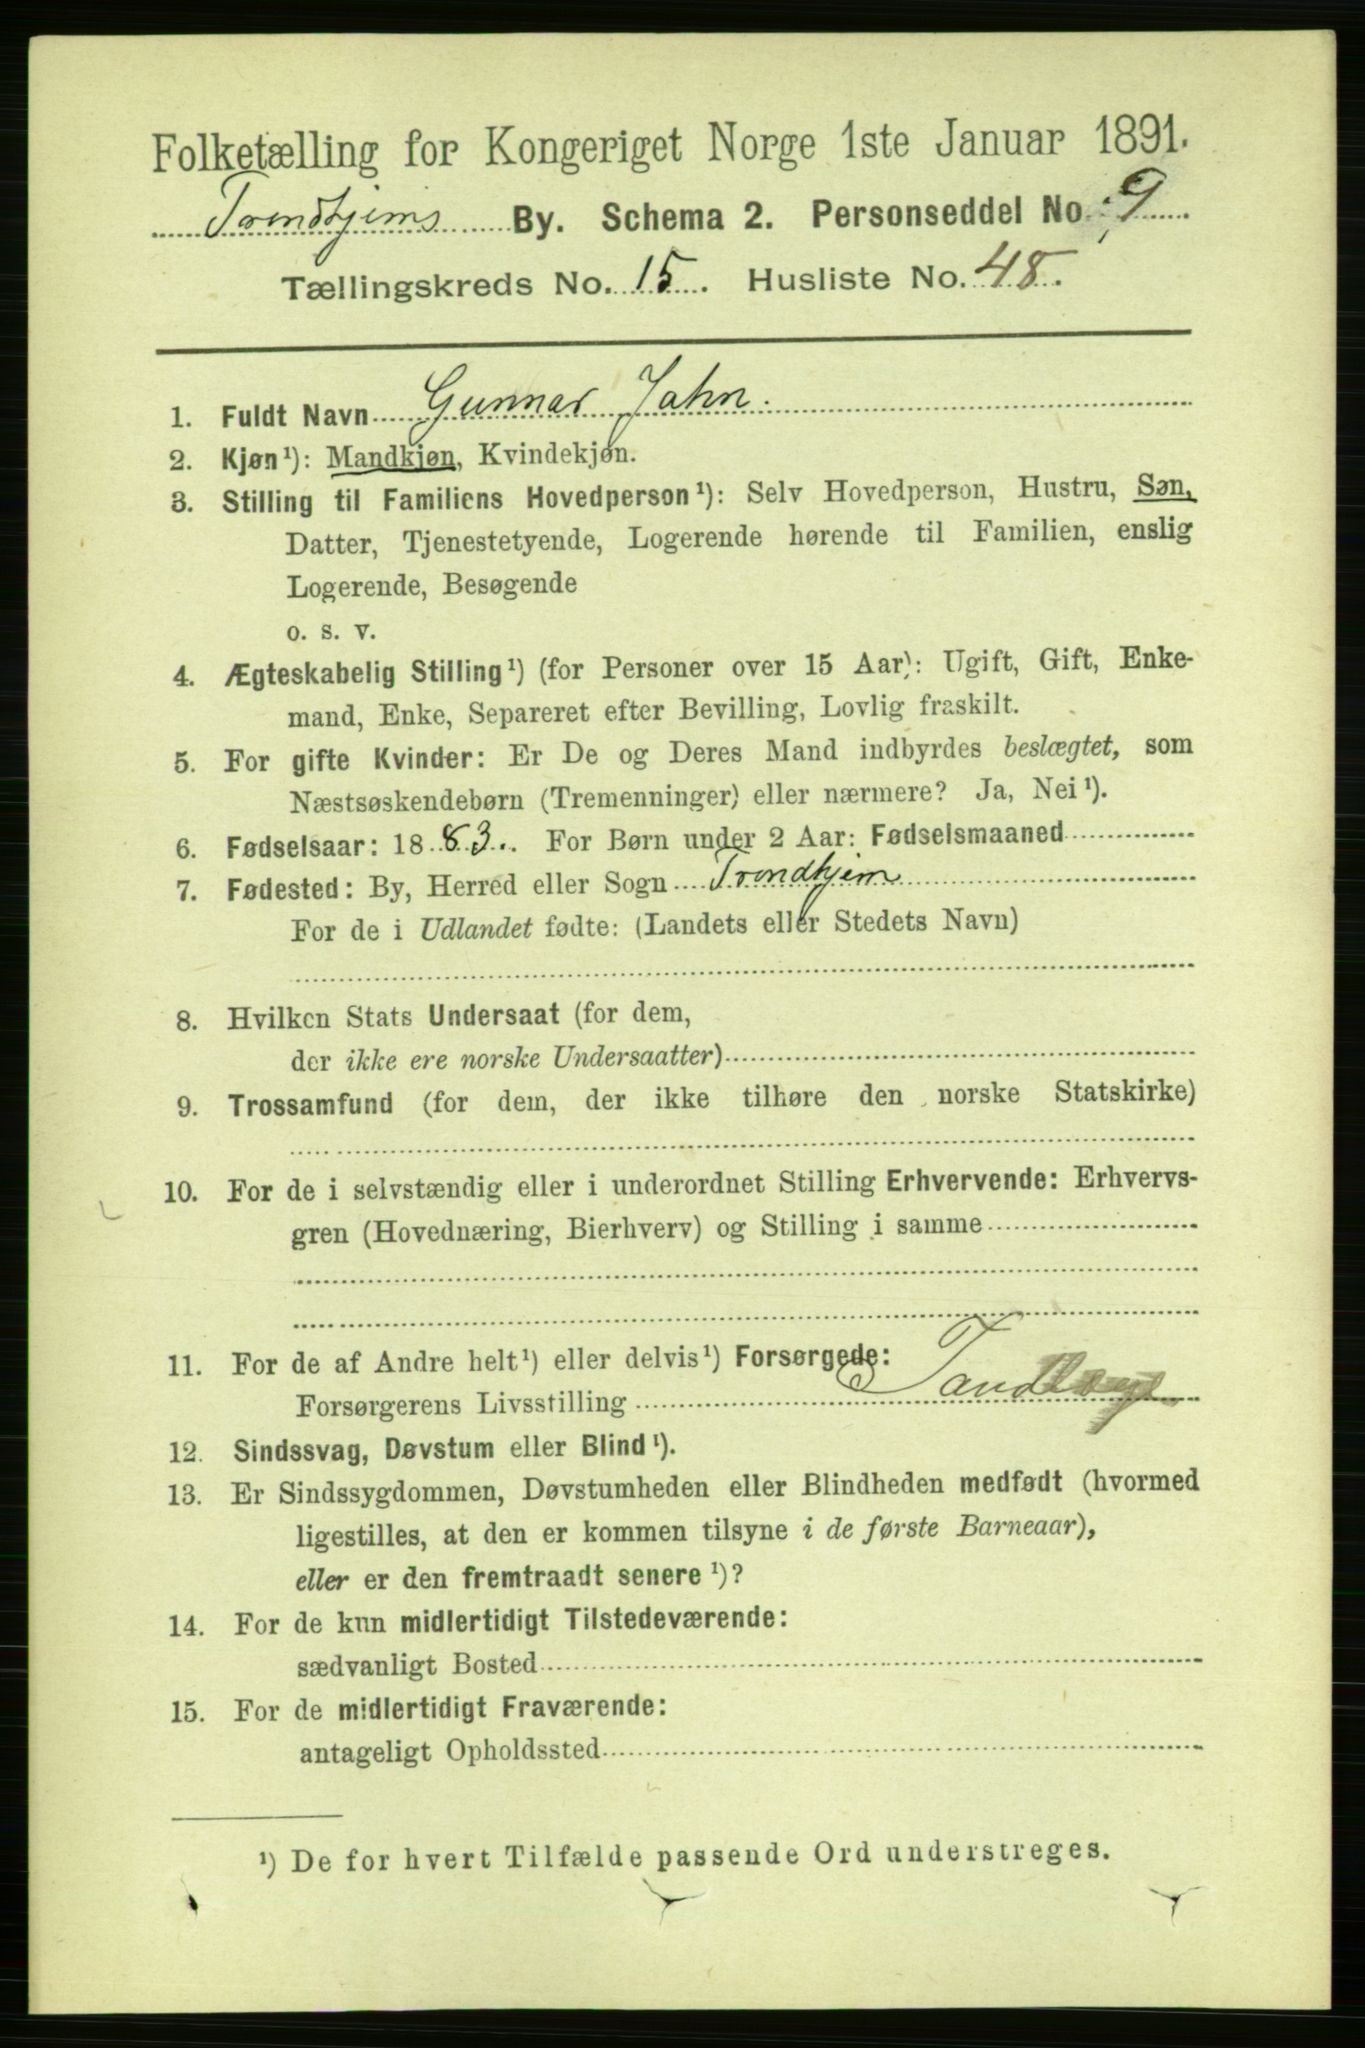 Folketælling for Kongeriget Norge 1ste Januar 1891.
Trondhjems By. Schema 2. Personseddel No. 9
Tællingskreds No. 15. Husliste No. 48.
1. Fuldt Navn Gunnar Jahn.
2. Kjøn¹): Mandkjøn, Kvindekjøn.
3. Stilling til Familiens Hovedperson¹): Selv Hovedperson, Hustru, Søn,
Datter, Tjenestetyende, Logerende hørende til Familien, enslig
Logerende, Besøgende
o. s. v.
4. Ægteskabelig Stilling¹) (for Personer over 15 Aar): Ugift, Gift, Enke-
mand, Enke, Separeret efter Bevilling, Lovlig fraskilt.
5. For gifte Kvinder: Er De og Deres Mand indbyrdes beslægtet, som
Næstsøskendebørn (Tremenninger) eller nærmere? Ja, Nei¹).
6. Fødselsaar: 1883. For Børn under 2 Aar: Fødselsmaaned
7. Fødested: By, Herred eller Sogn Trondhjem
For de i Udlandet fødte: (Landets eller Stedets Navn)
8. Hvilken Stats Undersaat (for dem,
der ikke ere norske Undersaatter)
9. Trossamfund (for dem, der ikke tilhøre den norske Statskirke)
10. For de i selvstændig eller i underordnet Stilling Erhvervende: Erhvervs-
gren (Hovednæring, Bierhverv) og Stilling i samme
11. For de af Andre helt¹) eller delvis¹) Forsørgede:
Forsørgerens Livsstilling Tandlæge
12. Sindssvag, Døvstum eller Blind¹).
13. Er Sindssygdommen, Døvstumheden eller Blindheden medfødt (hvormed
ligestilles, at den er kommen tilsyne i de første Barneaar),
eller er den fremtraadt senere¹)?
14. For de kun midlertidigt Tilstedeværende:
sædvanligt Bosted
15. For de midlertidigt Fraværende:
antageligt Opholdssted
¹) De for hvert Tilfælde passende Ord understreges.